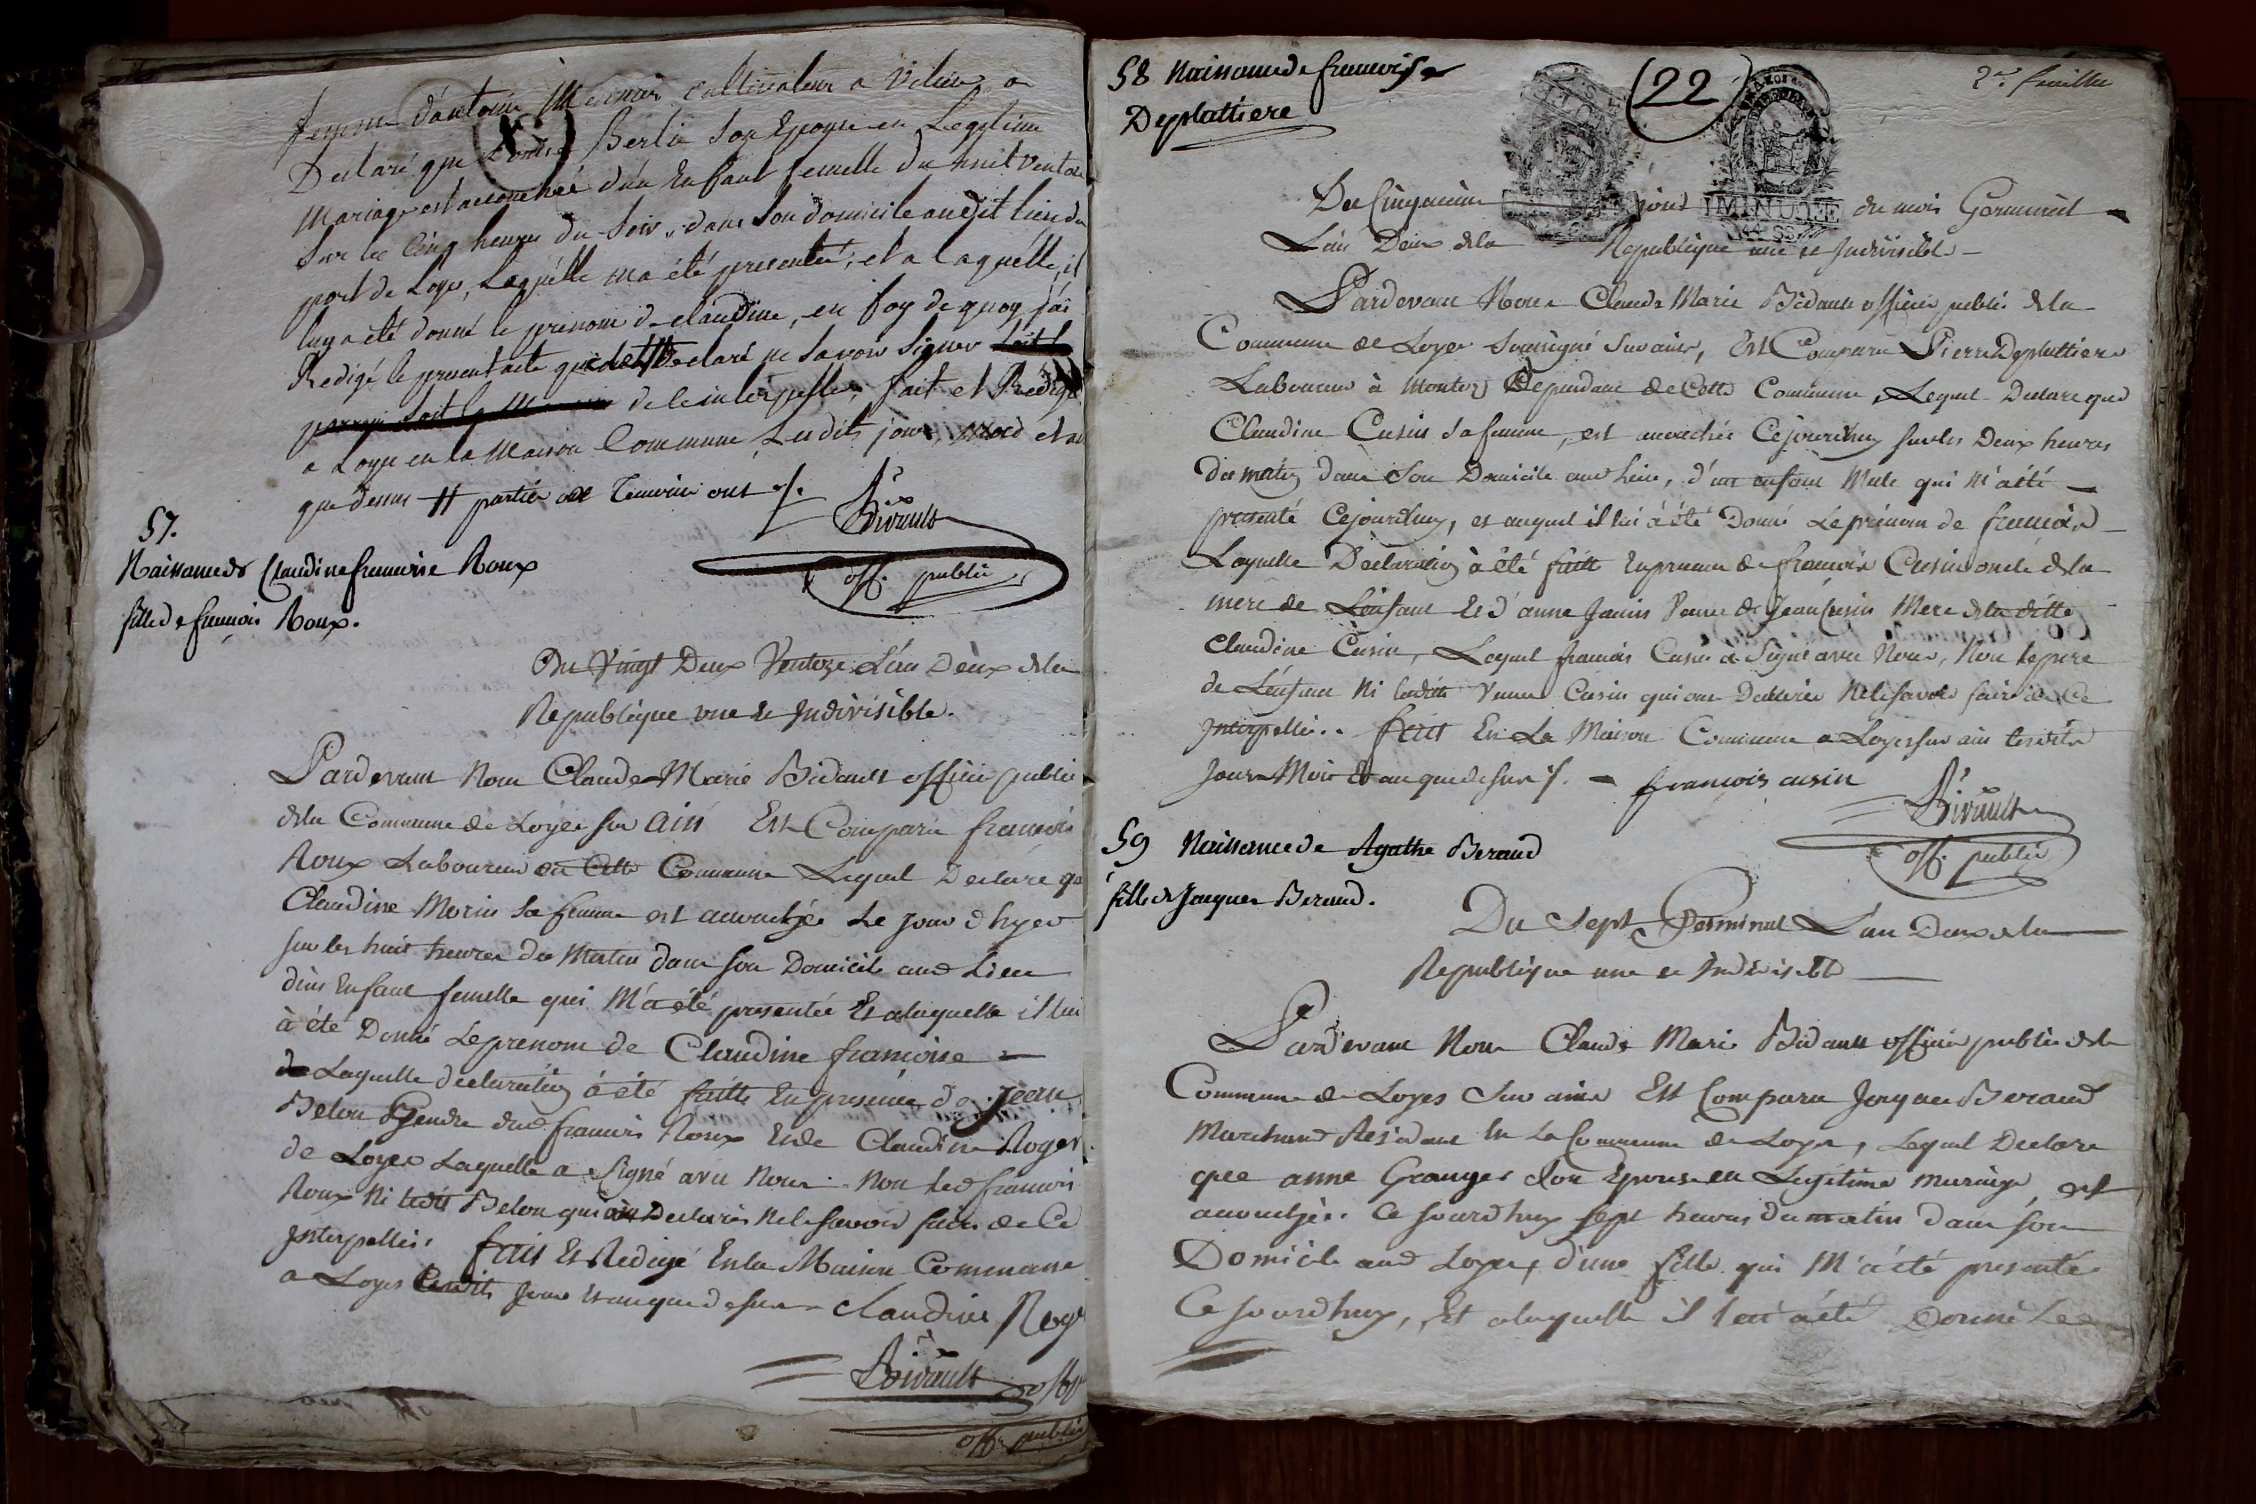 femme d'antoine cultivateur a
Declaré que Berlie Son Epouse en Legitime
Mariage est accouchée d'un Enfant femelle du huit Ventose
Sur les Cinq heures du Soir, dans Son domicile audit lieu du
port de Loye, Laquelle ma été presentée, et a laquelle, il
luy a été donné le prenom de claudine, en foy de quoy j'ai
Redigé le present acte Declaré ne Savoir Signer
de ce interpellé, fait et Redigé
a Loye en la Maison Commune, Lesdits jour, mois et an
que dessus
Bidault
off. public
57.
Naissance de Claudine francoise Roux
fille de francois Roux.
Du Vingt Deux Ventoze L'an Deux de la
Republique une et Indivisible.
Pardevant Nous Claude Marie Bidault officier public
de la Commune de Loyes sur ain Est Comparu francois
Roux Laboureur en Cette Commune Lequel Declare que
Claudine Morin Sa femme est accouchée Le jour d'hyer
sur les huit heures du Matin dans son Domicile aud Lieu
d'un Enfant femelle qui M'a été presentée Et a laquelle il lui
à été Donné Le prenom de Claudine francoise
Laquelle declaration à été faitte En presence de Jean
Belon Gendre dud francois Roux Et de Claudine Roger
de Loyes Laquelle a Signé avec Nous Non led francois
Roux Ni ledit Belon qui ont Declarés Ne le Savoir faire de Ce
Interpellés. fait Et Redigé En la Maison Commune
a Loyes Lesdits Jour Et an que dessus claudine Roge
Bidault
off. public
58 Naissance de francoise
Deplattiere
(22)
2e. feuille
Du Cinquieme jour du mois Germinal
L'an Deux de la Republique une et Indivisible
MINUTE
Pardevant Nous Claude Marie Bidault officier public de la
Commune de Loyes soussigné Sur ain, Est Comparu Pierre Deplattiere
Laboureur à Dependant de Cette Commune, Lequel Declare que
Claudine Cusin Sa femme, est accouchée Cejourdhuy sur les Deux heures
du matin dans Son Domicile aud lieu, d'un enfant Male qui M'a été
presenté Cejourdhuy, et auquel il lui à été Donné Le prenom de francois
Laquelle Declaration à été faitte En presence de francois Cusin oncle de la
mere de L'enfant Et d'anne Janin Veuve de Jean Cusin Mere de la ditte
Claudine Cusin, Lequel francois Cusin à Signé avec Nous, Non le pere
de L'enfant Ni laditte Veuve Cusin qui ont Declarés Ne le Savoir faire de Ce
Interpellés. fait En La Maison Commune a Loyes sur ain lesdits
Jour Mois Et an que dessus francois cusin
Bidault
off. public
59 Naissance de Agathe Beraud
fille de Jacques Beraud.
Du Sept Germinal L'an Deux de la
Republique une et Indivisible
Pardevant Nous Claude Marie Bidault officier public de la
Commune de Loyes Sur ain Est Comparu Jacques Beraud
Marchand Residant En La Commune de Loyes, Lequel Declare
que anne Granger Son Epouse en Legitime mariage, est
accouchée Ce Jourdhuy Sept heures du matin dans Son
Domicile aud Loyes, d'une fille qui M'a été presentée
Ce Jourdhuy, Et a laquelle il lui a été Donné Le